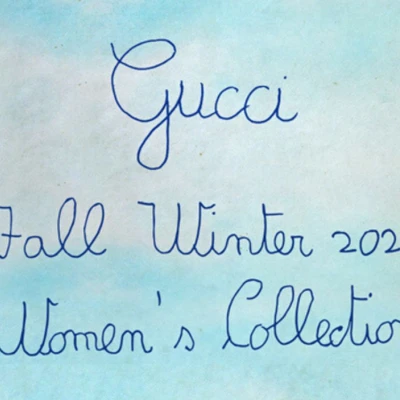 Gucci
Fall Winter 202
Women's Collectio